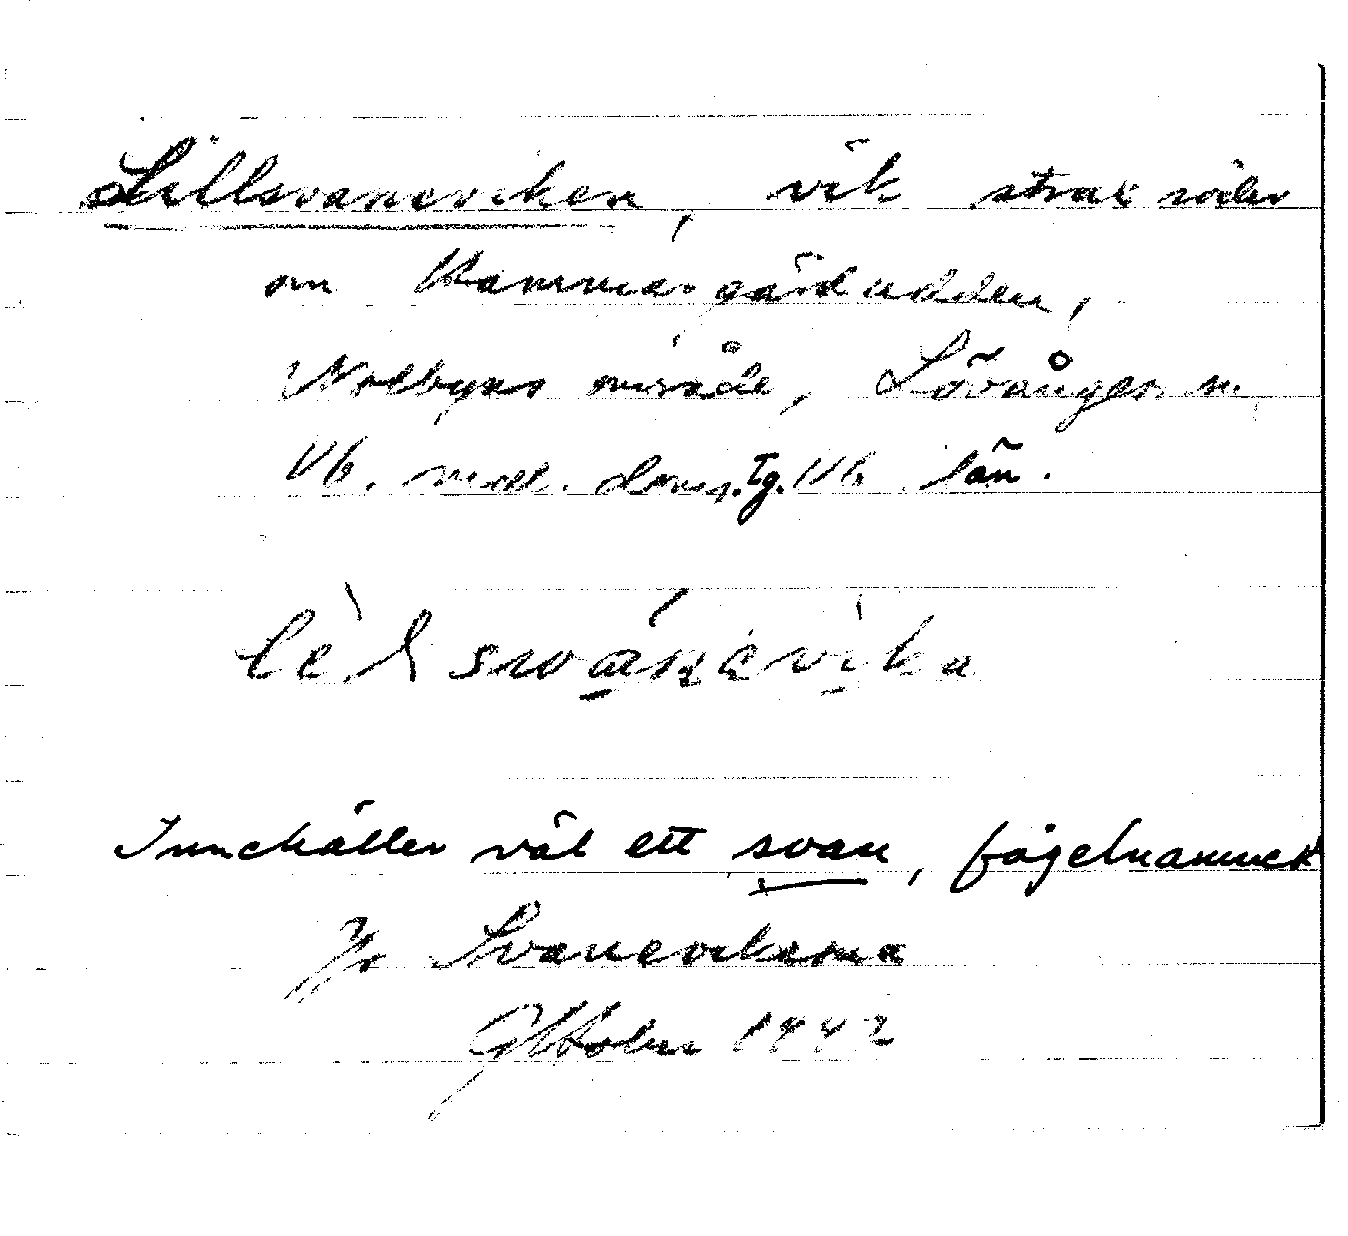 Lillsvaneviken, vik strax söder
om Hammargårdudden,
Nolbyns område, Lövångers sn,
Vb. med. doms. Tg. Vb. län.
svanevika
Innehåller väl ett svan, fågelnamnet
Jfr Svanevikarna
Oktober 1942